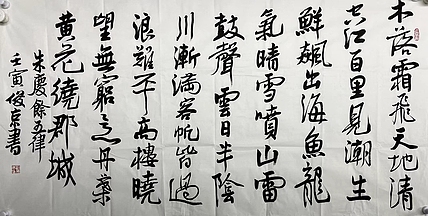 木落霜飛天地清
空江百里見潮生
鮮飆出海魚龍
氣晴雪噴山雷
鼓聲雲日半陰
川漸滿客帆皆過
浪難平高樓曉
望無窮意丹葉
黃花繞郡城
朱慶餘五律
壬寅俊京書